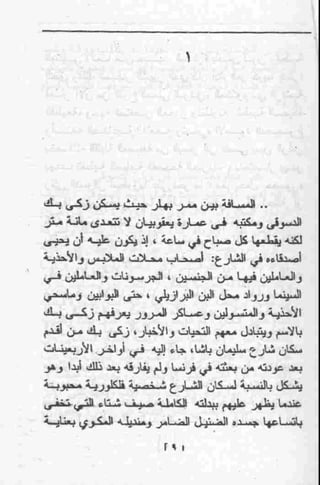 ١
.. المسافة بين ممر بهلر حيث يسكن زكى بك
الدسوقى ومكتبه فى عمارة يعقوبيان لا تتعدى مائة متر
لكنه يقطعها كل صباح في ساعة ، إذ يكون عليه أن يحيى
أصدقاءه في الشارع: أصحاب محلات الملابس والأحذية
والعاملين فيها من الجنسين ، الجرسونات والعاملين فى
السينما ورواد محل البن البرازيلي ، حتى البوابين وماسحي
الأحذية والمتسولين وعساكر المرور يعرفهم زكى بك
بالاسم ويتبادل معهم التحيات والأخبار، زكى بك من أقدم
سكان شارع سليمان باشا، جاء إليه في أواخر الأربعينات
بعد عودته من بعثته في فرنسا ولم يفارقه بعد ذلك أبدا وهو
يشكل بالنسبة لسكان الشارع شخصية فلكلورية محبوبة
عندما يظهر عليهم ببدلته الكاملة صيف شتاء التي تخفى
باتساعها جسده الضئيل الضامر ومنديله المكوي بعناية
[٩]